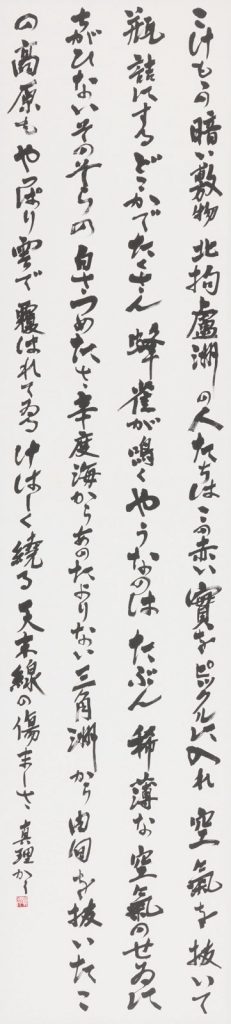 こけもゝの暗い敷物 北拘盧洲の人たちはこの赤い實をピックルに入れ 空氣を抜いて
瓶詰にする どこかでたくさん 蜂雀が鳴くやうなのは たぶん 稀薄な空氣のせゐだ
ちがひない そのそらの 白さつめたさ 辛度海からあのたよりない三角洲から 由旬を抜いたこ
の高原も やっぱり雲で覆はれてゐる けはしく繞る天末線の傷ましさ 真理かく